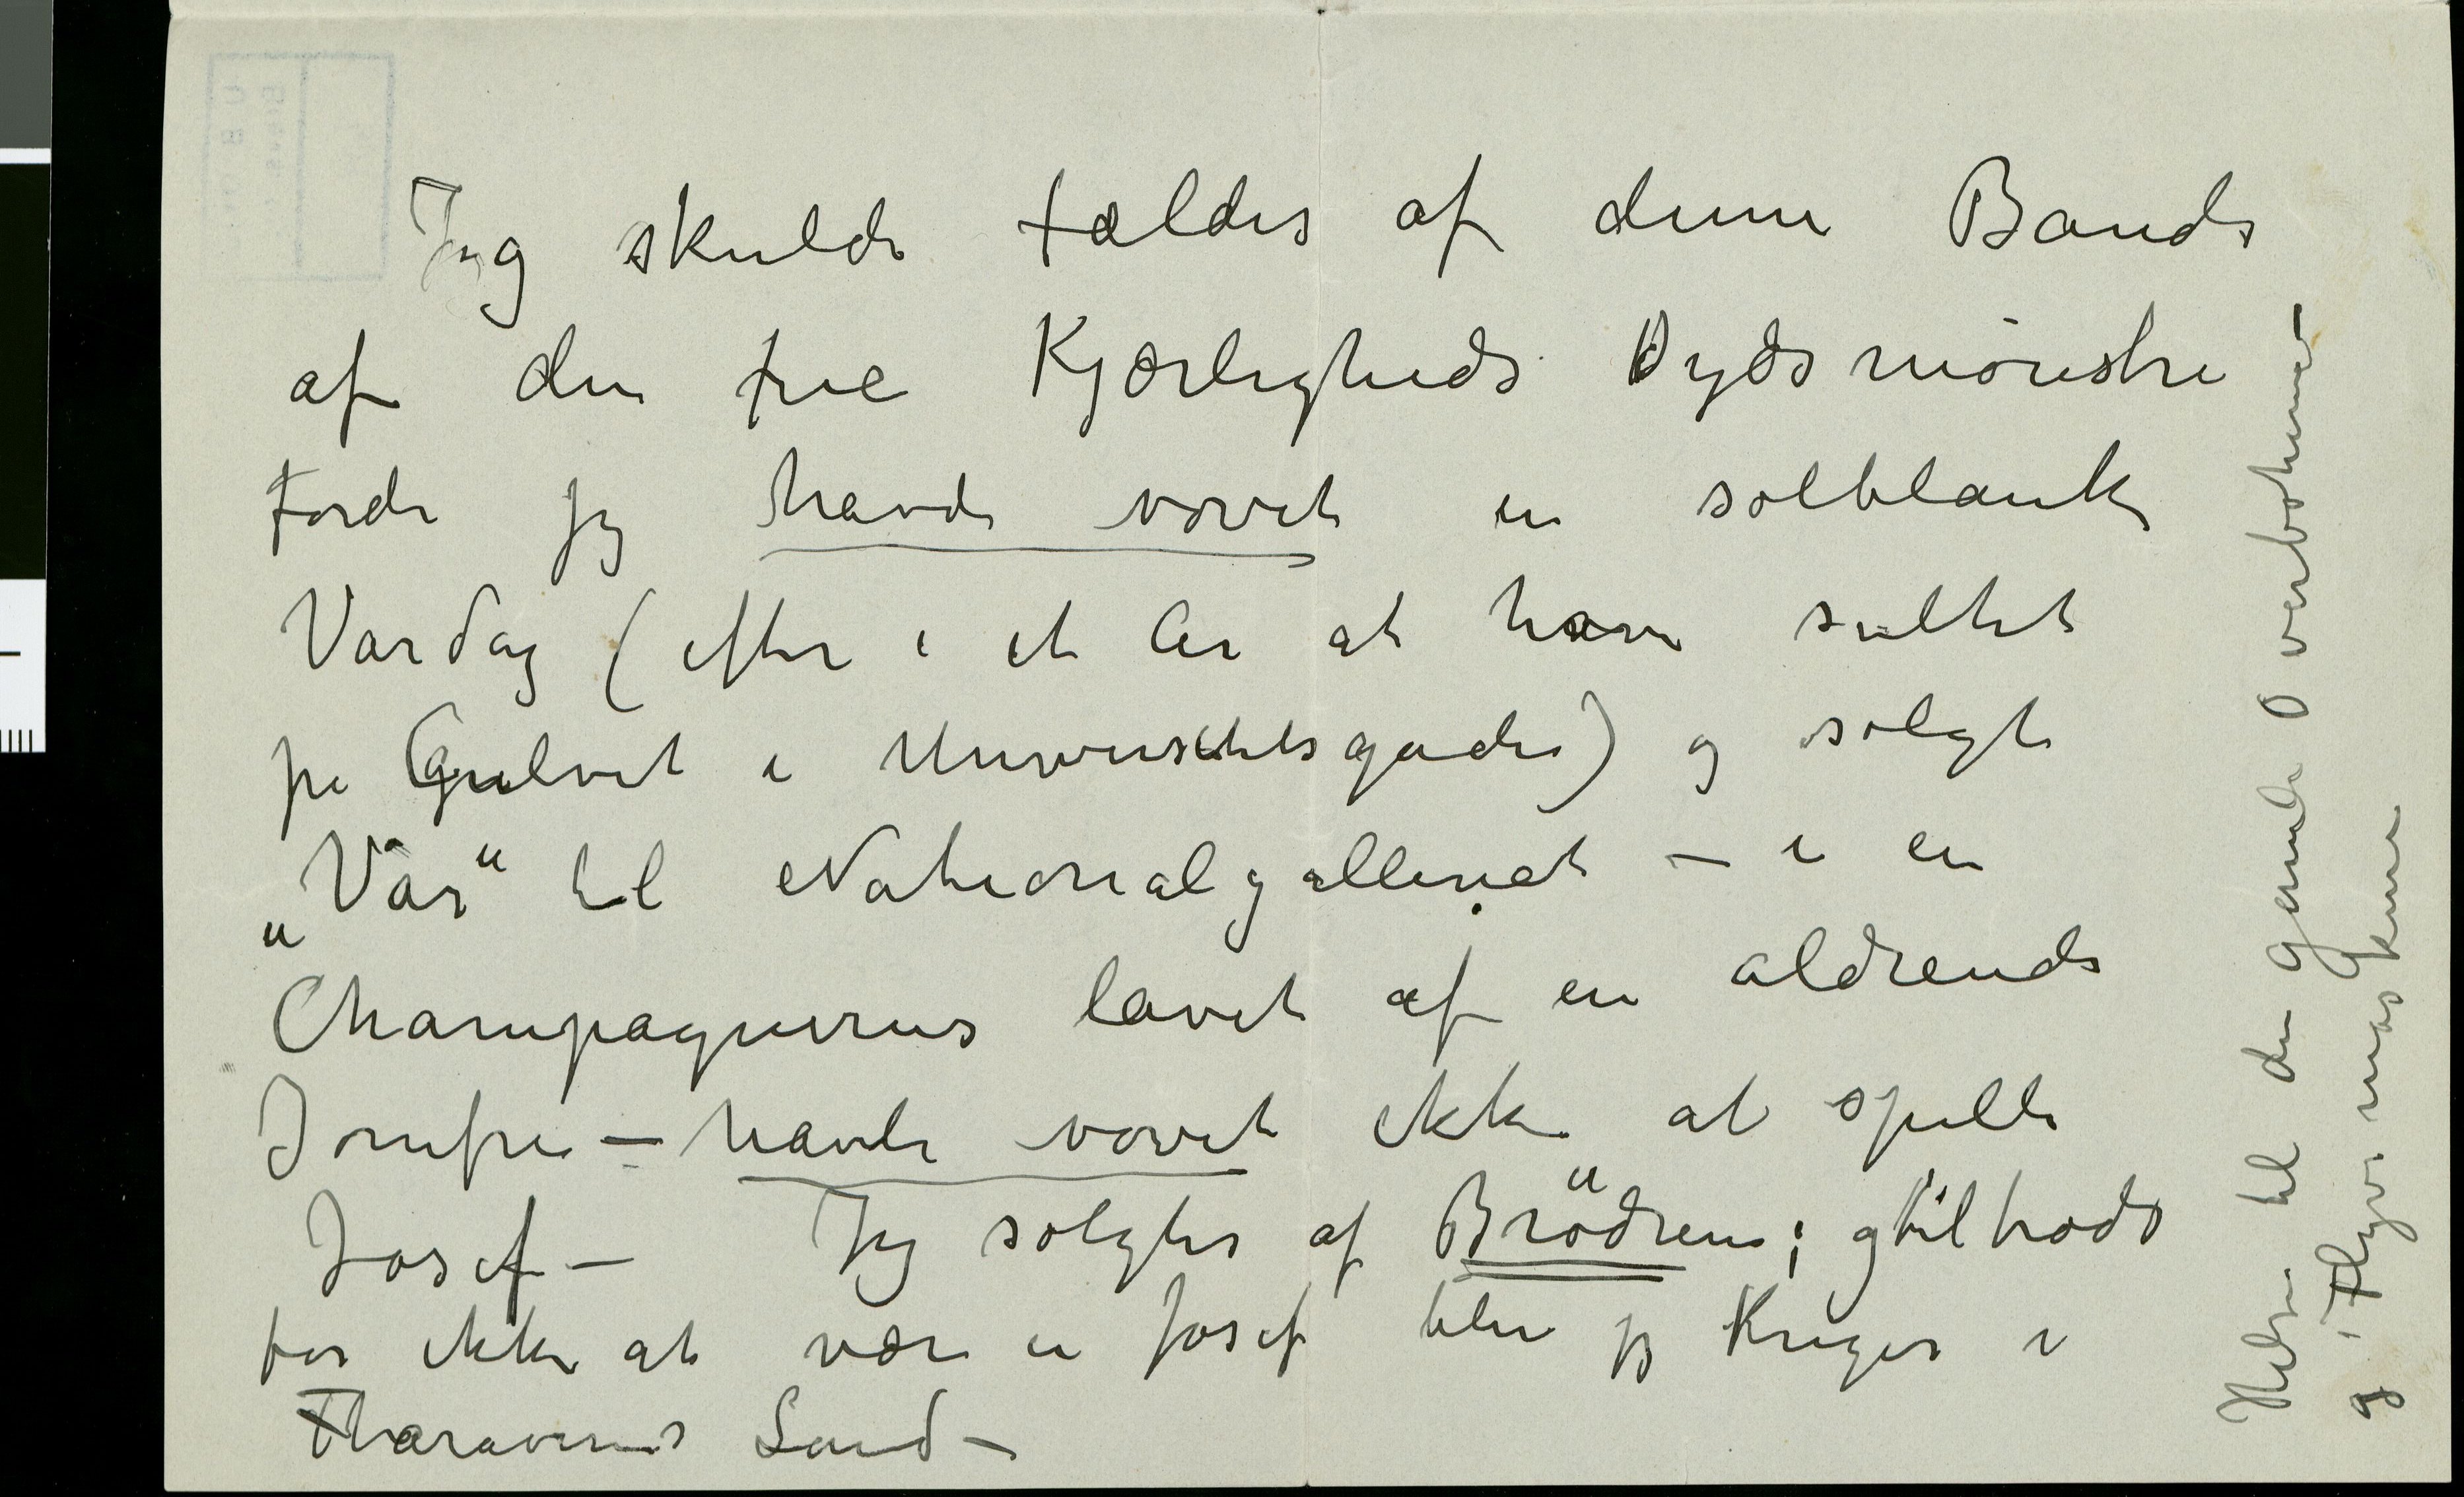 Jeg skulde fældes af denne Bande
af den frie Kjærligheds Dydsmönstre
Fordi jeg havde vovet en solblank
Vårdag (efter i et År at have sultet
på Gulvet i Universitetsgaden) og solgt
„Vår" til Nationalgalleriet – i en
Champagnerus lavet af en aldrende
Jomfru – havde vovet ikke at spille
Josef – Jeg solgtes af Brödrene; og tiltrods
for ikke at være en Josef blev jeg Kriger i
Pharaoernes Land –
Hilsen til den gamle Overbohemer
og i Flyvemaskine